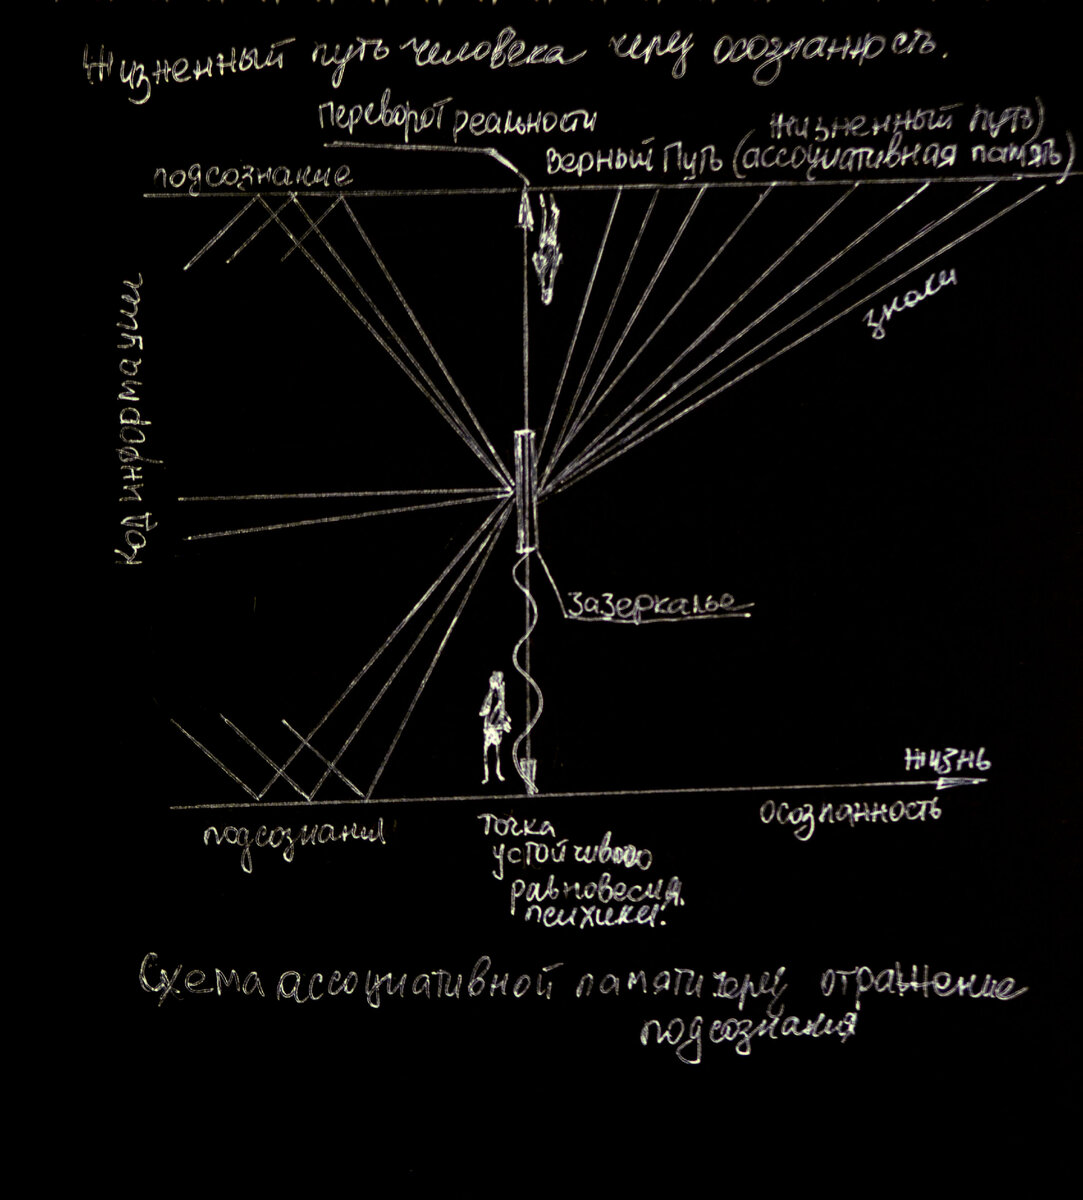 Жизненный путь человека через осознанность.
Переворот реальности
Жизненный путь)
Верный Путь (ассоциативная память)
подсознание
знаки
Код информации
Зазеркалье
Жизнь
осознанность
подсознания
точка
устойчивого
равновесия
психики.
Схема ассоциативной памяти через отражение
подсознания